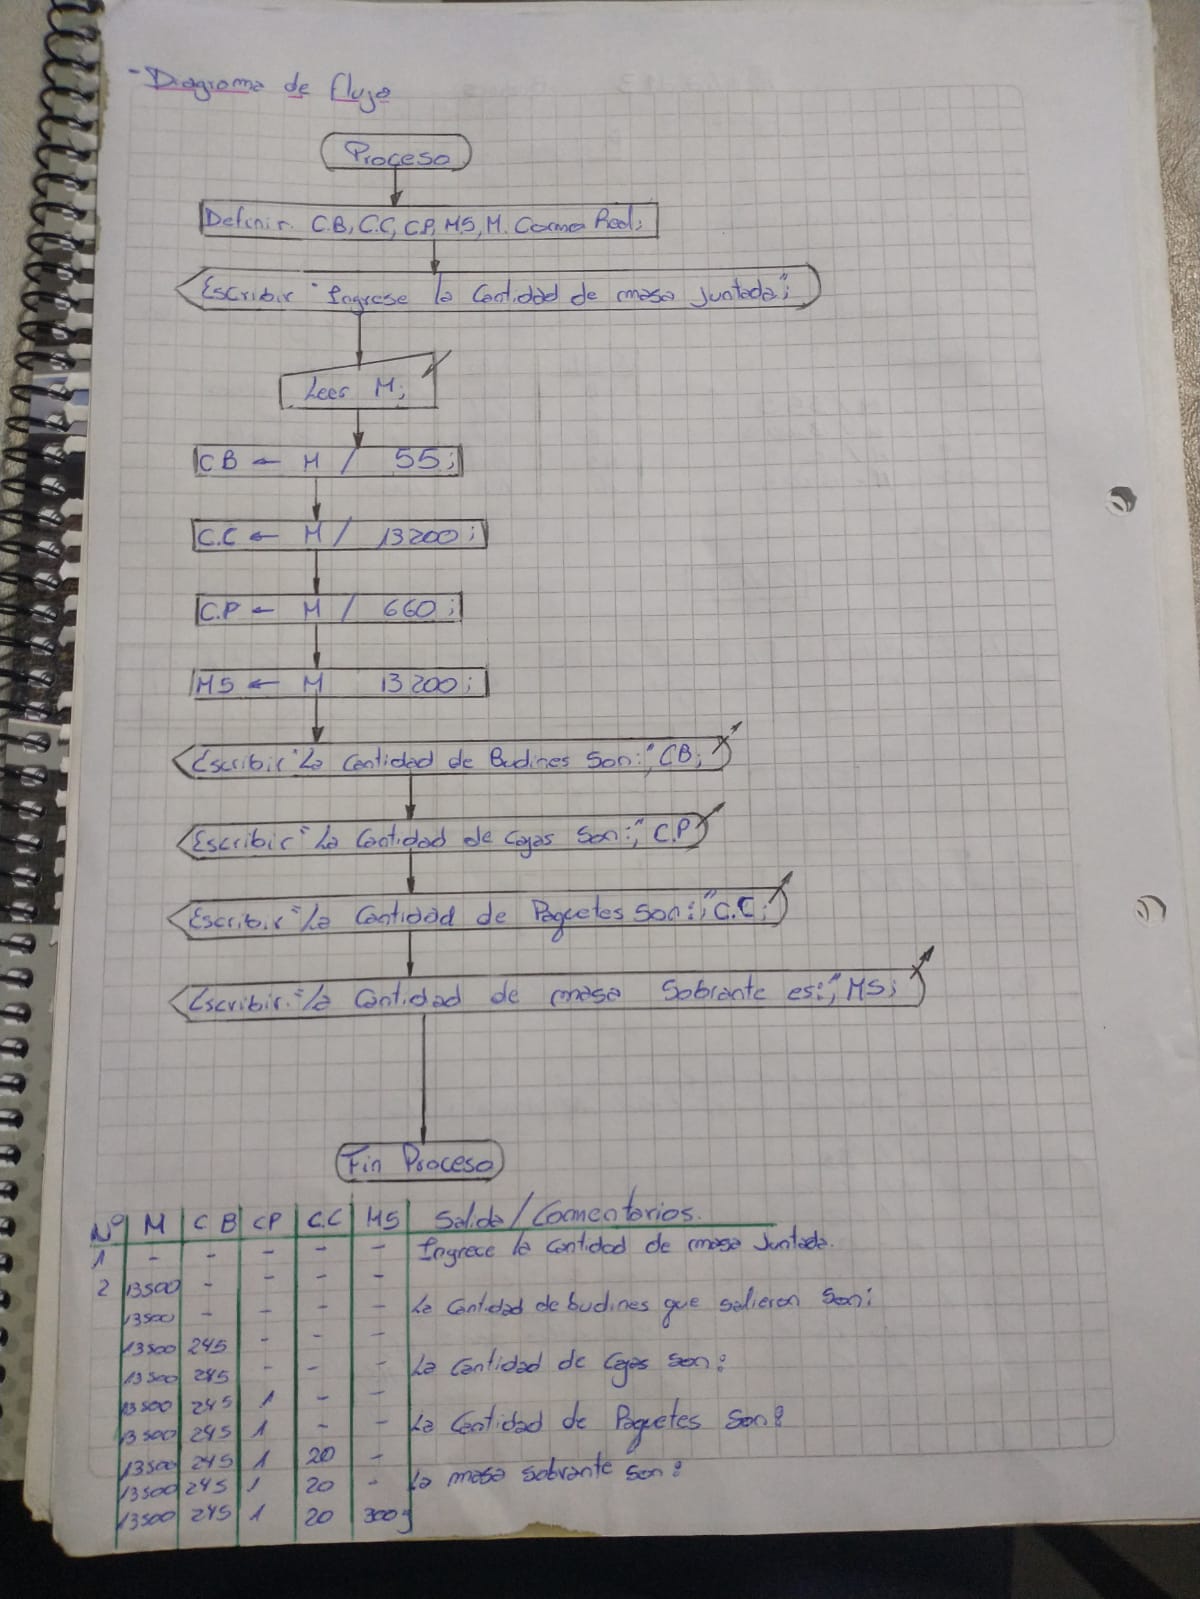 - Diagrama de flujo
Proceso
Definir C.B, C.C, C.P, M.S, M. Como Real;
Escribir "Ingrese la Cantidad de masa Juntada";
Leer M;
CB ← M / 55;
C.C ← M / 13200;
C.P ← M / 660;
MS ← M 13200;
Escribir "La Cantidad de Budines Son:", CB;
Escribir "La Cantidad de Cajas Son:", C.P
Escribir "La Cantidad de Paquetes Son:", C.C;
Escribir. "la Cantidad de masa Sobrante es:", MS;
Fin Proceso
Nº M C B CP C.C MS Salida / Comentarios.
1 - - - - - Ingrece la Cantidad de masa Juntada.
2 13500 - - - -
13500 - - - - La Cantidad de budines que salieron Son:
13500 245 - - -
13500 245 - - - La Cantidad de Cajas Son:
13500 245 1 - -
13500 245 1 - - La Cantidad de Paquetes Son:
13500 245 1 20 -
13500 245 1 20 - La masa Sobrante Son:
13500 245 1 20 300g